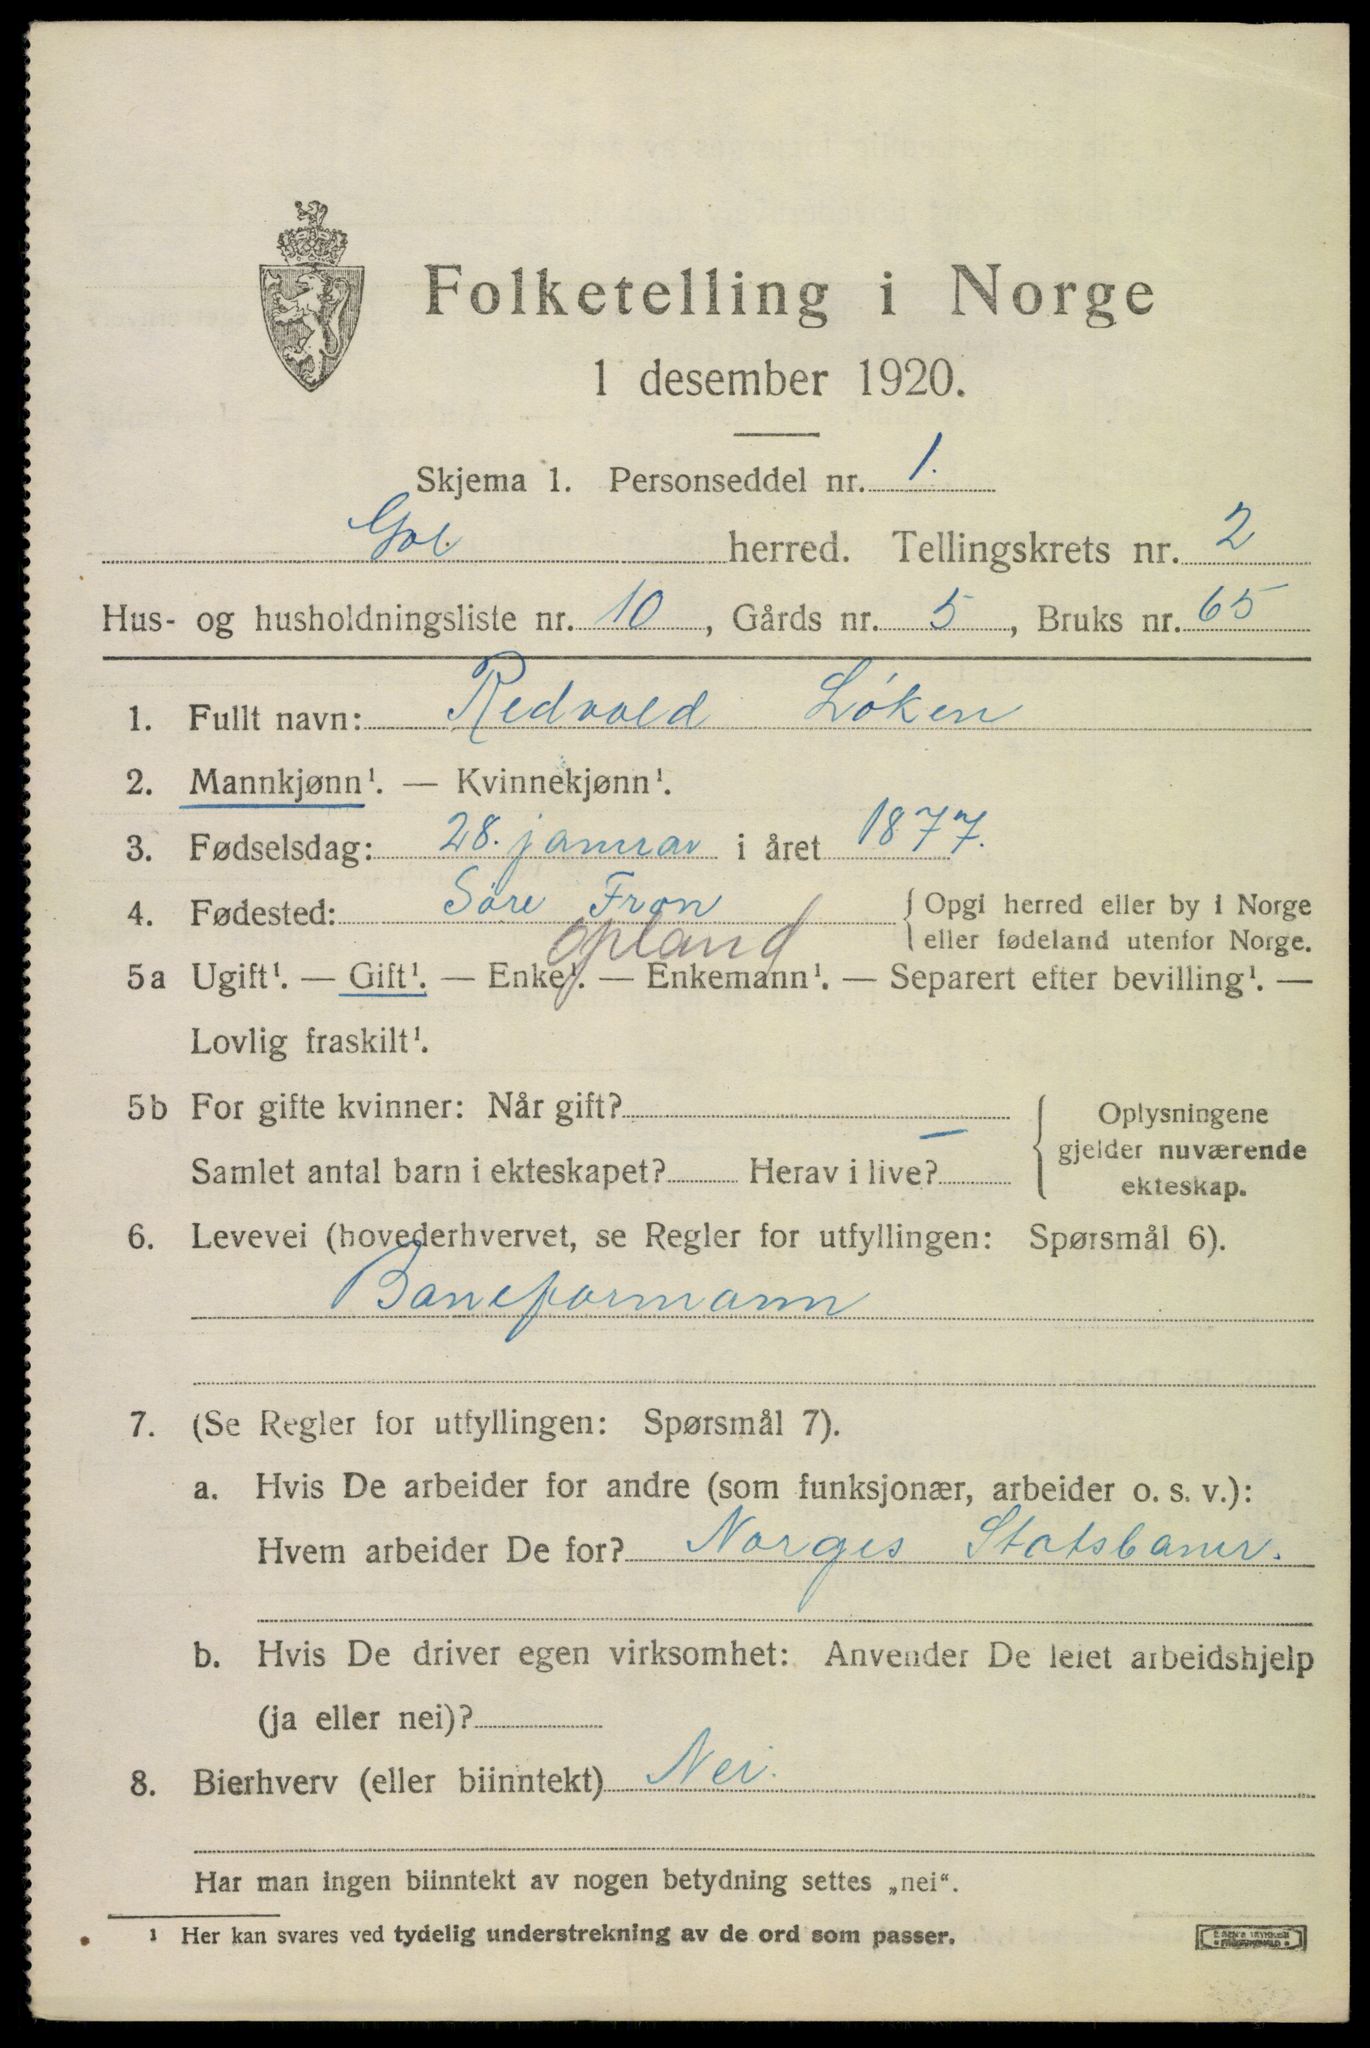 Folketelling i Norge
1 desember 1920.
Skjema 1. Personseddel nr. 1.
Gol. herred. Tellingskrets nr. 2
Hus- og husholdningsliste nr. 10, Gårds nr. 5, Bruks nr. 65
1. Fullt navn: Redvald Løken
2. Mannkjønn¹. — Kvinnekjønn¹.
3. Fødselsdag: 28. januar i året 1877.
4. Fødested: Søre Fron { Opgi herred eller by i Norge
opland eller fødeland utenfor Norge.
5a Ugift¹. — Gift¹. — Enke¹. — Enkemann¹. — Separert efter bevilling¹. —
Lovlig fraskilt¹.
5b For gifte kvinner: Når gift? { Oplysningene
gjelder nuværende
Samlet antal barn i ekteskapet? Herav i live? —
ekteskap.
6. Levevei (hovederhvervet, se Regler for utfyllingen: Spørsmål 6).
Baneformann
7. (Se Regler for utfyllingen: Spørsmål 7).
a. Hvis De arbeider for andre (som funksjonær, arbeider o. s. v.):
Hvem arbeider De for? Norges Statsbaner.
b. Hvis De driver egen virksomhet: Anvender De leiet arbeidshjelp
(ja eller nei)?
8. Bierhverv (eller biinntekt) Nei.
Har man ingen biinntekt av nogen betydning settes „nei“.
¹ Her kan svares ved tydelig understrekning av de ord som passer.